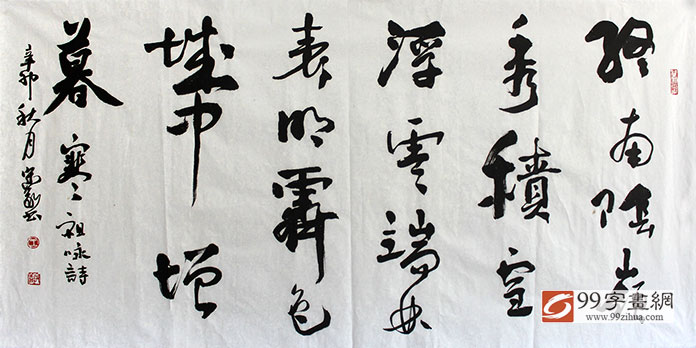 終南陰嶺
秀積雪
浮雲端林
表明霽色
城中增
暮寒祖詠詩
辛卯秋月
99字畫網
www.99zihua.com